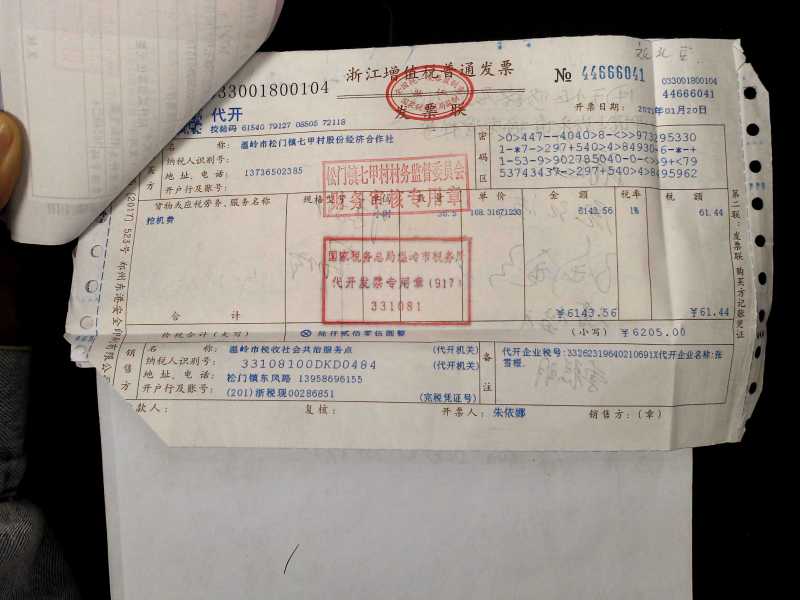 033001800104
浙江增值税普通发票
№ 44666041
033001800104
44666041
代开
发票联
开票日期: 2021年01月20日
校验码 61540 79127 08505 72118
名 称: 温岭市松门镇七甲村股份经济合作社
纳税人识别号:
地址、电话: 13736502385
开户行及账号:
密码区
>0>447--4040>8-<>>973295330
1-*7->297+540>4>84930-6-*-+
1-53-9>902785040-0-<>9+<79
5374343 ->297+540>4>8495962
松门镇七甲村村务监督委员会
财务审核专用章
货物或应税劳务、服务名称
规格型号
数量
单价
金额
税率
税额
挖机费
小时
108.31671233
6143.56
1%
61.44
国家税务总局温岭市税务局
代开发票专用章(917)
331081
合 计
¥6143.56
¥61.44
价税合计(大写)
陆仟贰佰零伍圆整
(小写) ¥6205.00
销售方
名 称: 温岭市税收社会共治服务点 (代开机关)
纳税人识别号: 33108100DKD0484 (代开机关)
地址、电话: 松门镇东风路 13958696155
开户行及账号: (201)浙税现00286851 (完税凭证号)
备注
代开企业税号:33262319640210691X代开企业名称:张
雪根.
款人:
复核:
开票人: 朱依娜
销售方:(章)
第二联:发票联 购买方记账凭证